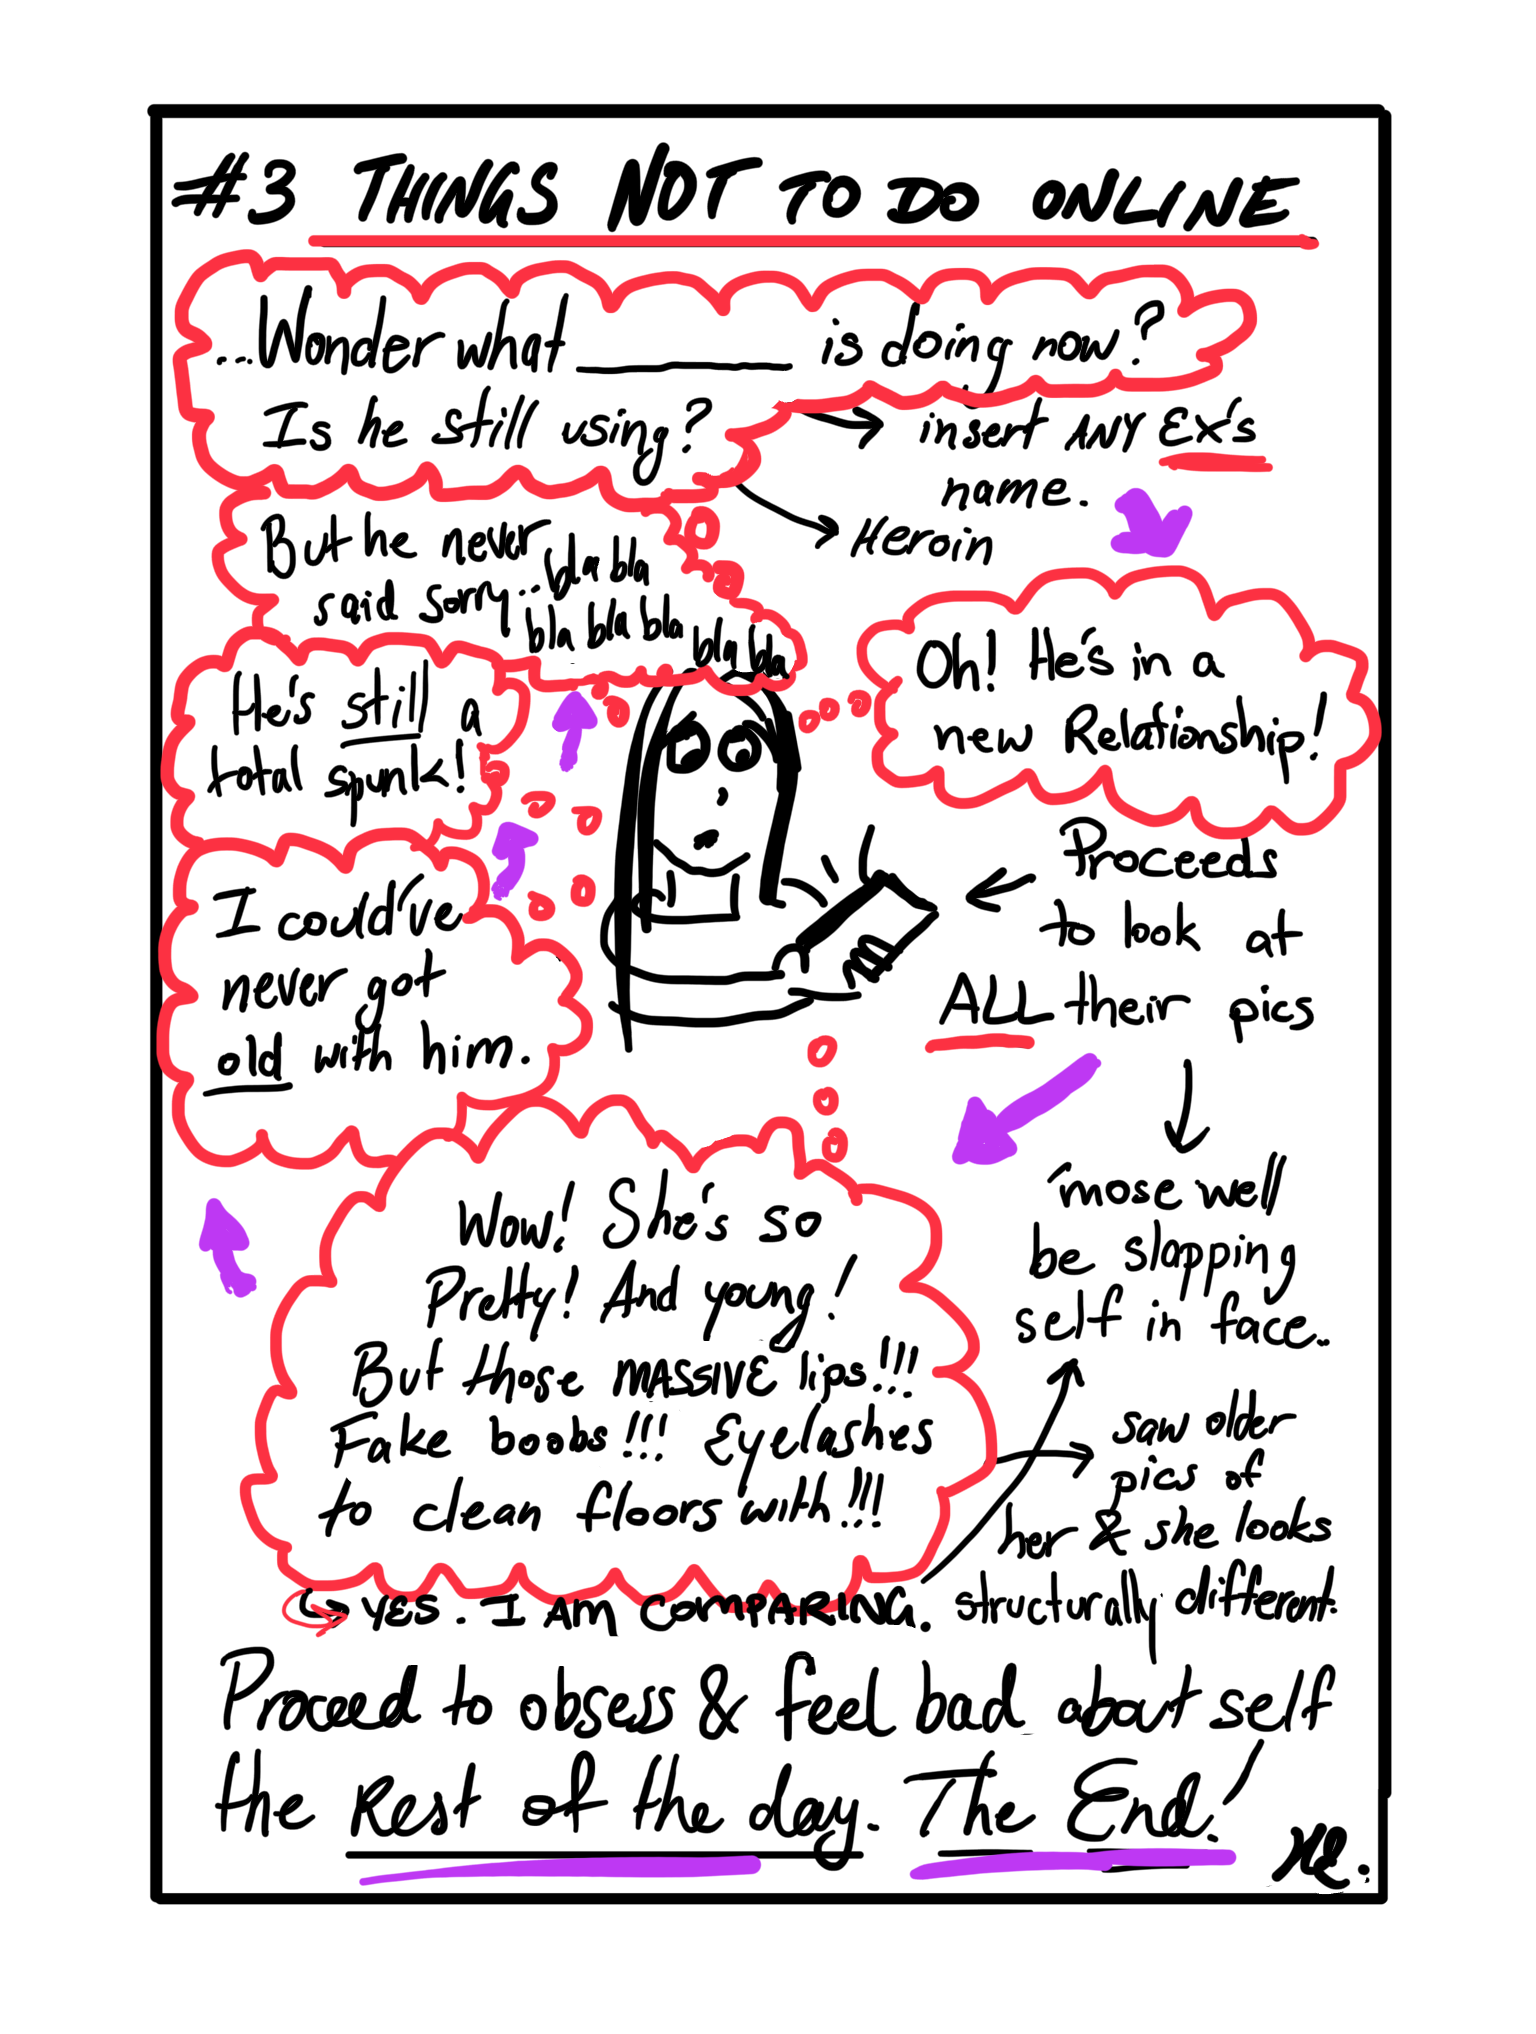 #3 THINGS NOT TO DO ONLINE
...Wonder what ________ is doing now?
Is he still using?
insert ANY EX's
name.
Heroin
Oh! He's in a
new Relationship!
Proceeds
to look at
ALL their pics
'mose well
be slapping
self in face..
Wow! She's so
Pretty! And young!
But those MASSIVE lips!!!
Fake boobs!!! Eyelashes
to clean floors with!!!
saw older
pics of
her & she looks
structurally different.
YES. I AM COMPARING.
I could've
never got
old with him.
He's still a
total spunk!
But he never
said sorry... bla bla
bla bla bla bla bla
Proceed to obsess & feel bad about self
the Rest of the day. The End!